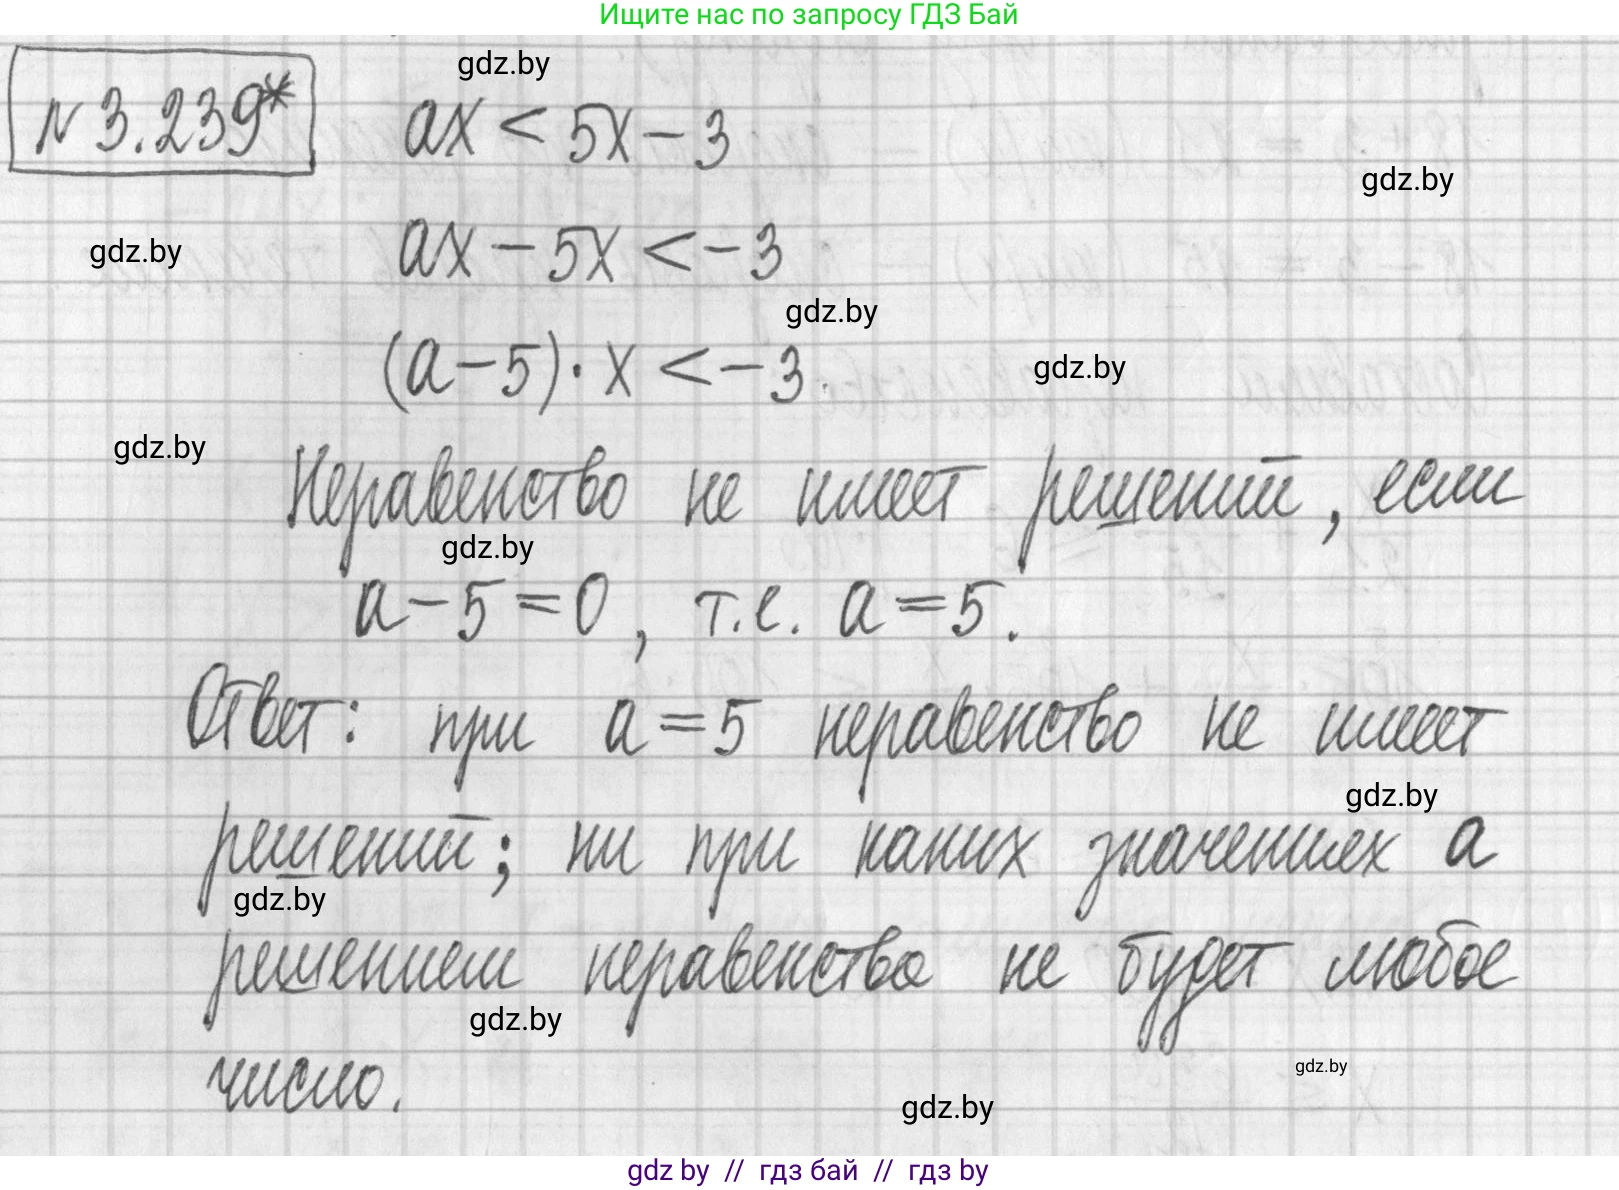 Ищите нас по запросу ГДЗ Бай
gdz.by
N 3.239* ax < 5x − 3
gdz.by
ax − 5x < −3
gdz.by
gdz.by
(a − 5) · x < −3.
gdz.by
gdz.by
Неравенство не имеет решений, если
gdz.by
a − 5 = 0, т.е. a = 5.
Ответ: при a = 5 неравенство не имеет
gdz.by
решений; ни при каких значениях a
gdz.by
решением неравенства не будет любое
gdz.by
число.
gdz.by
gdz.by
gdz by // гдз бай // гдз by